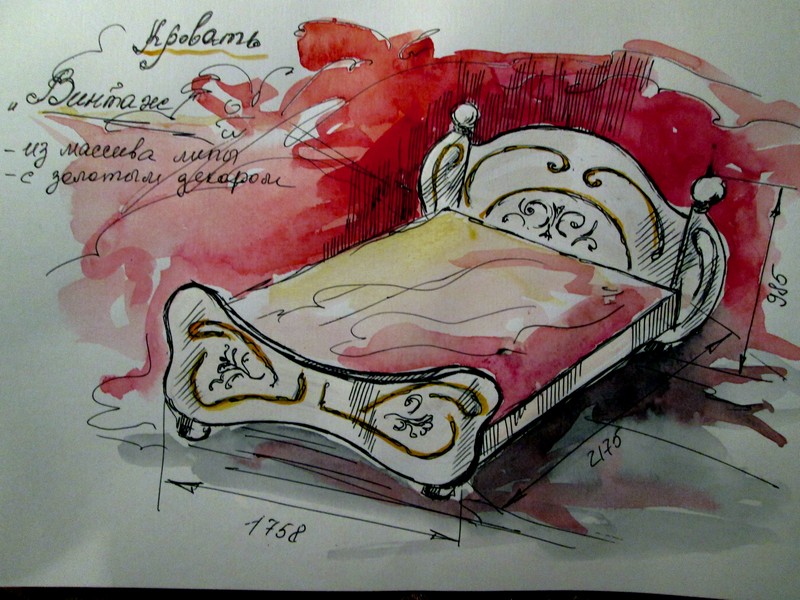 Кровать
"Винтаж"
- из массива липы
- с золотым декором
985
2175
1758